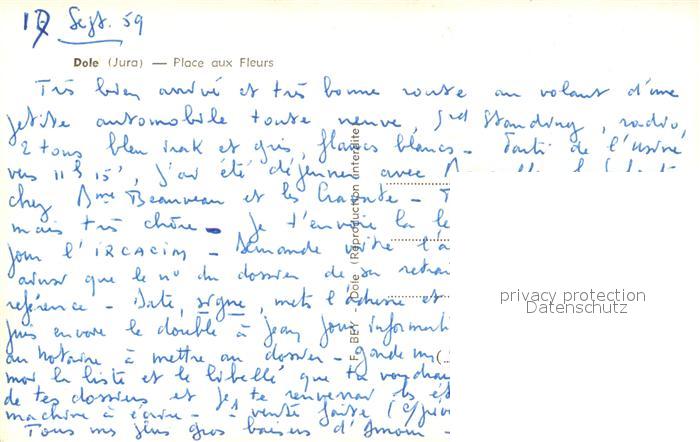 Sept. 59
Dole (Jura) — Place aux Fleurs
Très bien arrivé et très bonne route au volant d'une
petite automobile toute neuve, gd standing, radio,
2 tons bleu et gris, flancs blancs - Parti de l'usine
vers 11h 15', j'ai été déjeuner avec
chez Mme Beauveau et les
mais très chère - je t'envoie la
pour l'IRCACIM - Demande vite
ainsi que le no du dossier de sa
référence - Date, signe, mets l'adresse et
puis envoie le double à Jean pour
au notaire à mettre au dossier - garde
moi la liste et le libellé que tu
de tes dossiers et je te renverrai
machine à écrire - vente faite
Tous mes plus gros baisers d'Amour -
F. BEY - Dole (Reproduction interdite
privacy protection
Datenschutz